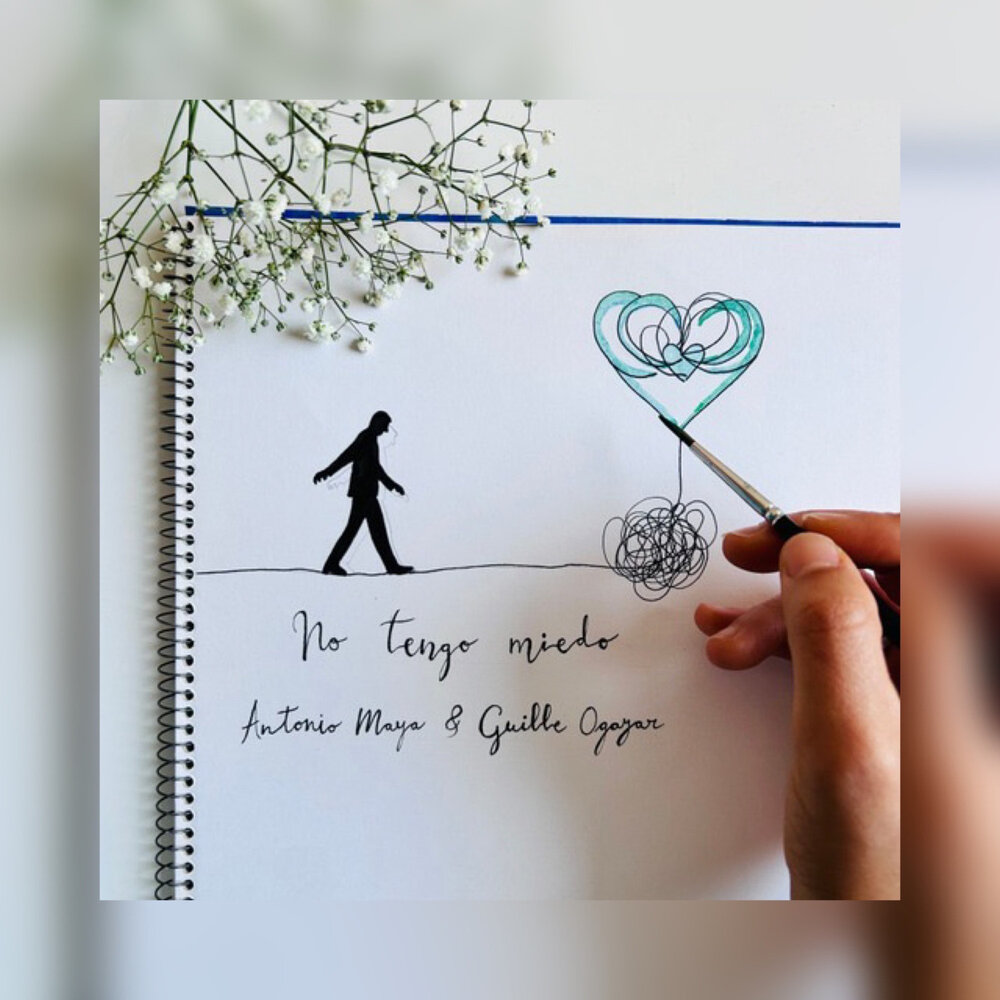 No tengo miedo
Antonio Maya & Guille Ogazar